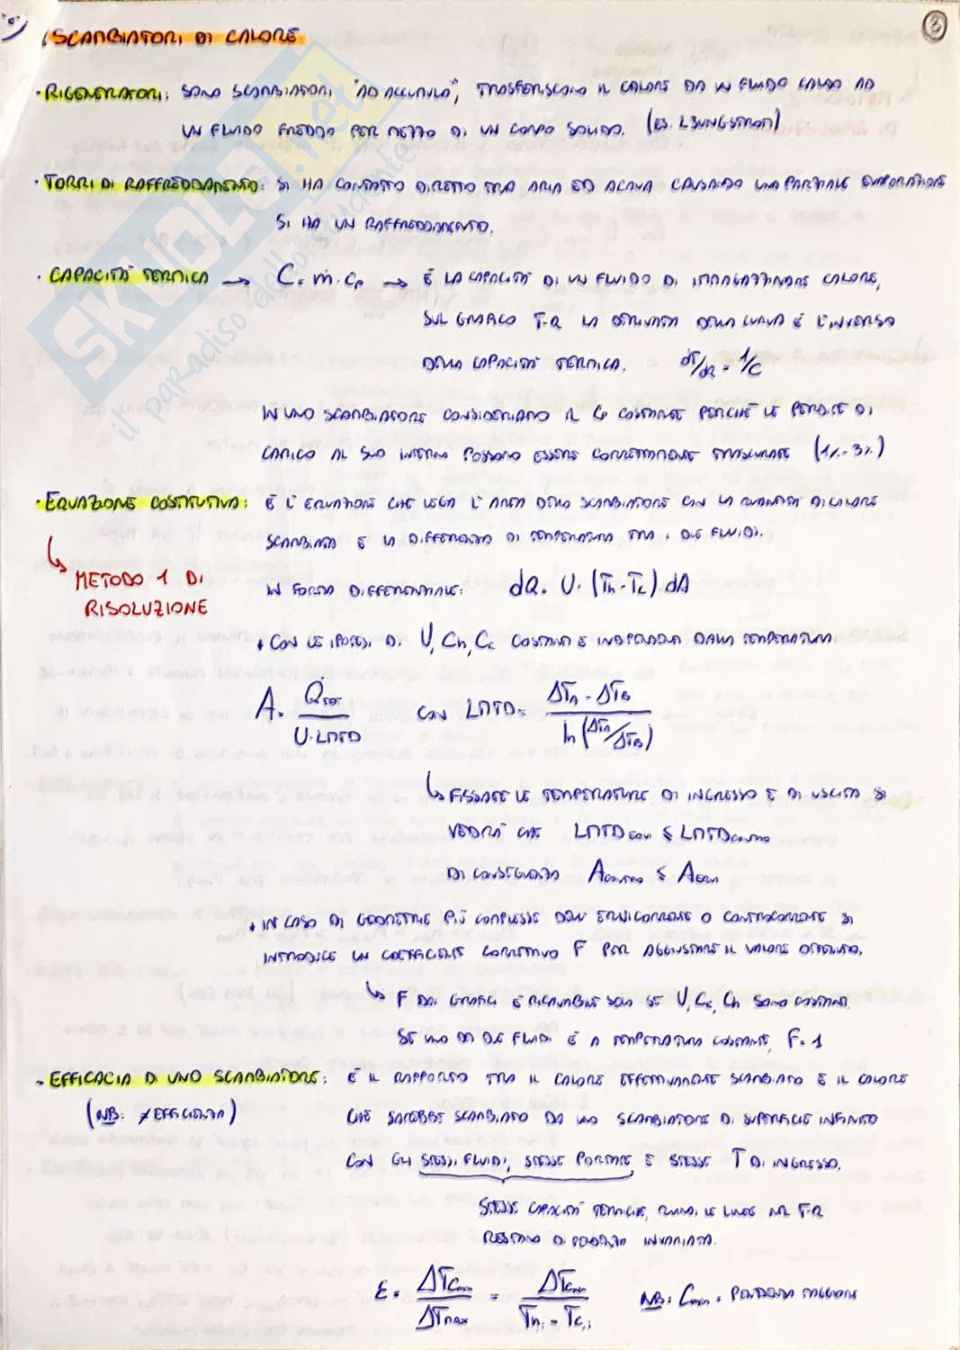 3
SCAMBIATORI DI CALORE
• RIGENERATORI: SONO SCAMBIATORI "AD ACCUMULO", TRASFERISCONO IL CALORE DA UN FLUIDO CALDO AD
UN FLUIDO FREDDO PER MEZZO DI UN CORPO SOLIDO. (ES. LJUNGSTROM)
• TORRI DI RAFFREDDAMENTO: SI HA CONTATTO DIRETTO TRA ARIA ED ACQUA CAUSANDO UNA PARZIALE EVAPORAZIONE
SI HA UN RAFFREDDAMENTO.
• CAPACITÀ TERMICA → C = ṁ · cp → È LA CAPACITÀ DI UN FLUIDO DI IMMAGAZZINARE CALORE,
SUL GRAFICO T-Q LA DERIVATA DELLA CURVA È L'INVERSO
DELLA CAPACITÀ TERMICA. dT/dQ = 1/C
IN UNO SCAMBIATORE CONSIDERIAMO IL Cp COSTANTE PERCHÉ LE PERDITE DI
CARICO AL SUO INTERNO POSSONO ESSERE CORRETTAMENTE TRASCURATE (1%-3%)
• EQUAZIONE COSTITUTIVA: È L'EQUAZIONE CHE LEGA L'AREA DELLO SCAMBIATORE CON LA QUANTITÀ DI CALORE
SCAMBIATA E LA DIFFERENZA DI TEMPERATURA TRA I DUE FLUIDI.
METODO 1 DI
RISOLUZIONE
IN FORMA DIFFERENZIALE: dQ = U · (Th - Tc) dA
• CON LE IPOTESI DI U, Ch, Cc COSTANTI E INDIPENDENTI DALLA TEMPERATURA
A = Q̇tot / U · LMTD CON LMTD = ΔTA - ΔTB / ln (ΔTA/ΔTB)
↳ FISSATE LE TEMPERATURE DI INGRESSO E DI USCITA SI
VEDRÀ CHE LMTD equi ≤ LMTD contro
DI CONSEGUENZA A contro ≤ A equi
• IN CASO DI GEOMETRIE PIÙ COMPLESSE DELL'EQUICORRENTE O CONTROCORRENTE SI
INTRODUCE UN COEFFICIENTE CORRETTIVO F PER AGGIUSTARE IL VALORE OTTENUTO.
↳ F DAI GRAFICI È RICAVABILE SOLO SE U, Cc, Ch SONO COSTANTI.
SE UNO DEI DUE FLUIDI È A TEMPERATURA COSTANTE, F = 1
• EFFICACIA DI UNO SCAMBIATORE: È IL RAPPORTO TRA IL CALORE EFFETTIVAMENTE SCAMBIATO E IL CALORE
(NB: ≠ EFFICIENZA) CHE SAREBBE SCAMBIATO DA UNO SCAMBIATORE DI SUPERFICIE INFINITO
CON GLI STESSI FLUIDI, STESSE PORTATE E STESSE T DI INGRESSO.
STESSE CAPACITÀ TERMICHE, QUINDI LE LINEE NEL T-Q
RESTANO DI PENDENZA INVARIATA.
ε = ΔTCmin / ΔTmax = ΔTCmin / Th,i - Tc,i NB: Cmin = PENDENZA MAGGIORE
SKUOLA.net
il paradiso dello studente